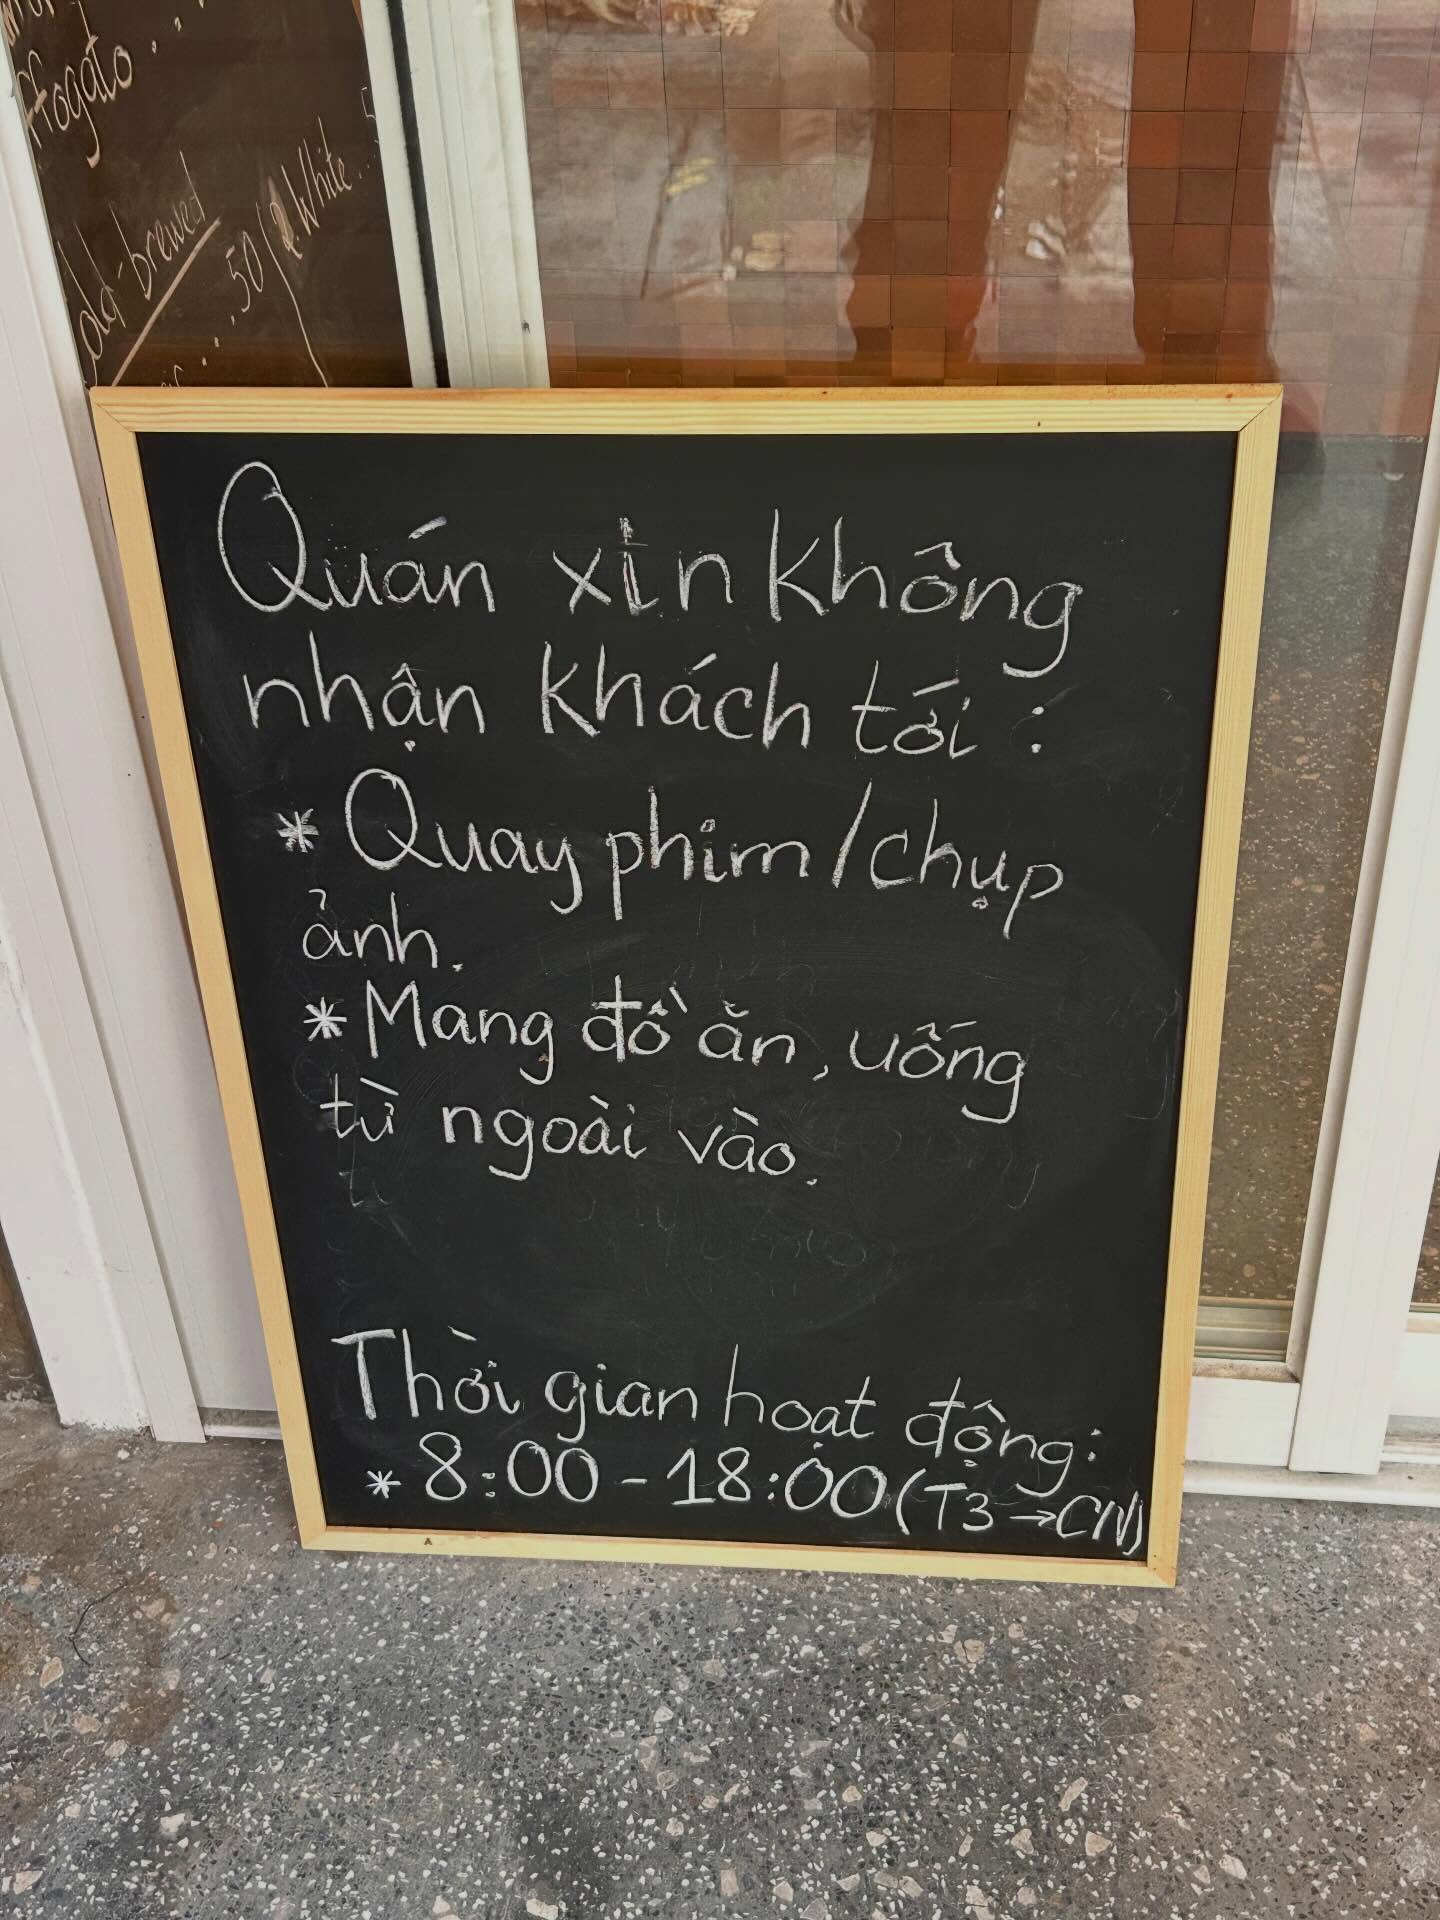 ffogato...
old-brewed
...50/ White...
Quán xin không
nhận khách tới :
* Quay phim/chụp
ảnh.
* Mang đồ ăn, uống
từ ngoài vào.
Thời gian hoạt động:
* 8:00 - 18:00 (T3 → CN)